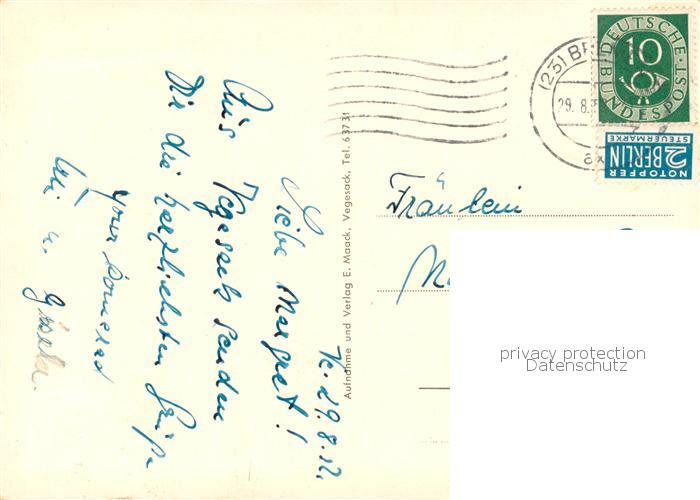 V. 29.8.52.
Liebe Margret!
Aus Vegesack senden
Dir die herzlichsten Grüße
your comerad
Uli u. Gisela.
Aufnahme und Verlag E. Maack, Vegesack, Tel. 63731
(23) BR
29. 8.
DEUTSCHE
BUNDESPOST
10
NOTOPFER
2 BERLIN
STEUERMARKE
Fräulein
privacy protection
Datenschutz